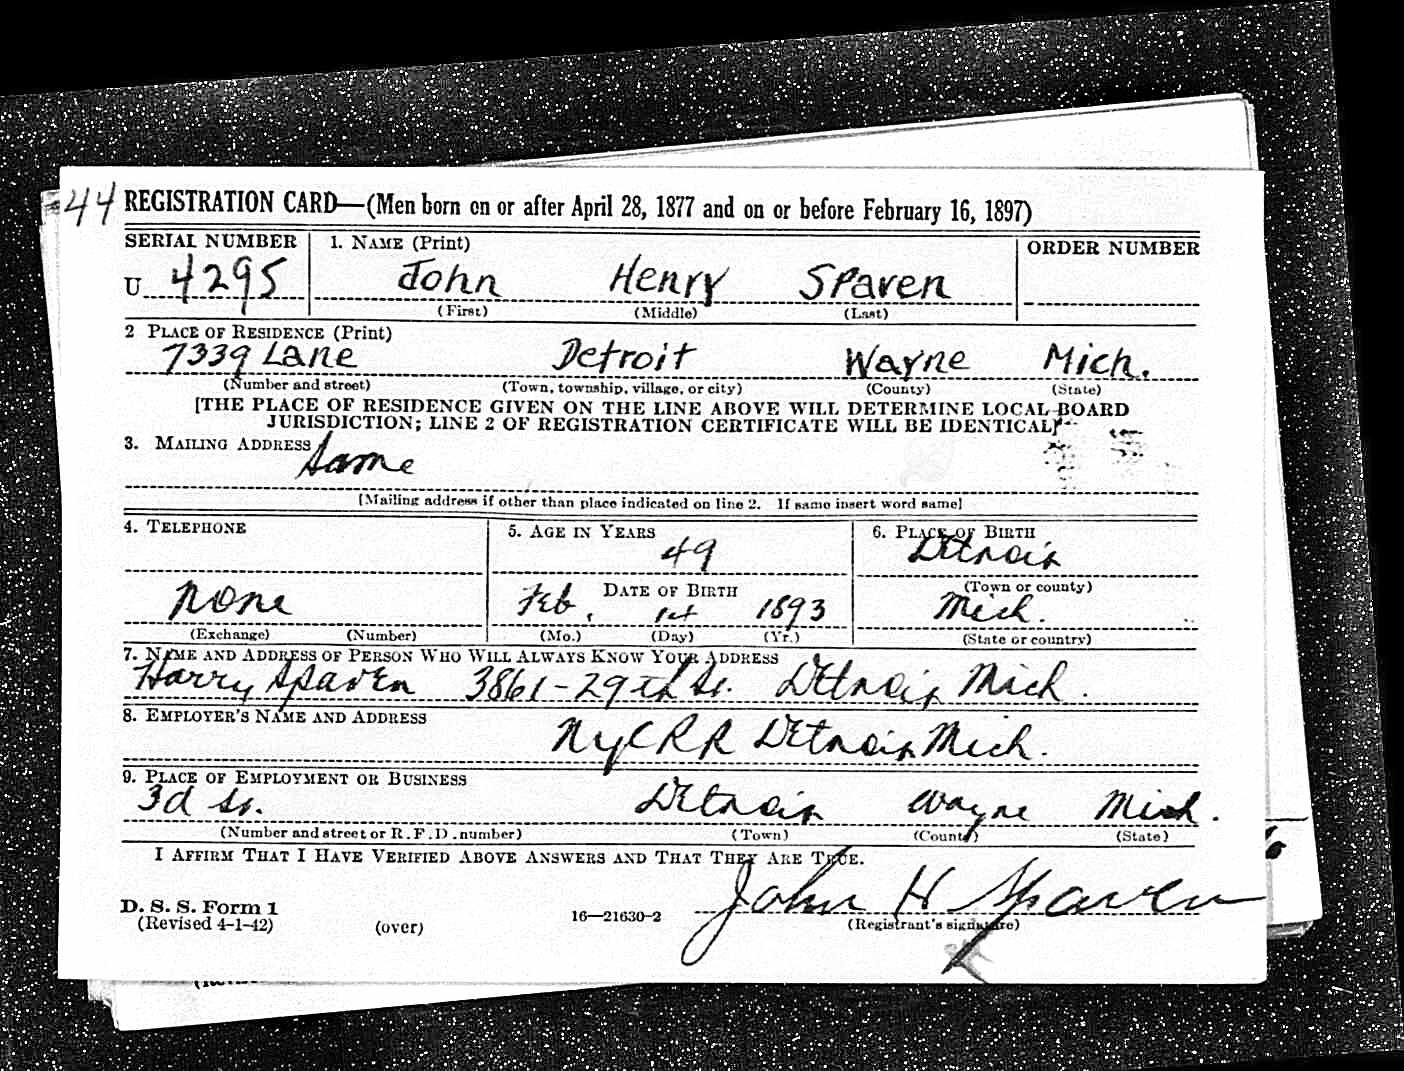 44 REGISTRATION CARD—(Men born on or after April 28, 1877 and on or before February 16, 1897)
SERIAL NUMBER 1. NAME (Print) ORDER NUMBER
U 4295 John Henry Sparen
(First) (Middle) (Last)
2 PLACE OF RESIDENCE (Print)
7339 Lane Detroit Wayne Mich.
(Number and street) (Town, township, village, or city) (County) (State)
[THE PLACE OF RESIDENCE GIVEN ON THE LINE ABOVE WILL DETERMINE LOCAL BOARD
JURISDICTION; LINE 2 OF REGISTRATION CERTIFICATE WILL BE IDENTICAL]
3. MAILING ADDRESS
Same
[Mailing address if other than place indicated on line 2. If same insert word same]
4. TELEPHONE 5. AGE IN YEARS 6. PLACE OF BIRTH
49 Detroit
DATE OF BIRTH (Town or county)
None Feb. 1st 1893 Mich.
(Exchange) (Number) (Mo.) (Day) (Yr.) (State or country)
7. NAME AND ADDRESS OF PERSON WHO WILL ALWAYS KNOW YOUR ADDRESS
Harry Sparen 3861-29th St. Detroit Mich.
8. EMPLOYER'S NAME AND ADDRESS
NyCRR Detroit Mich.
9. PLACE OF EMPLOYMENT OR BUSINESS
3d St. Detroit Wayne Mich.
(Number and street or R. F. D. number) (Town) (County) (State)
I AFFIRM THAT I HAVE VERIFIED ABOVE ANSWERS AND THAT THEY ARE TRUE.
John H Sparen
D. S. S. Form 1
(Revised 4-1-42) (over) 16—21630-2 (Registrant's signature)